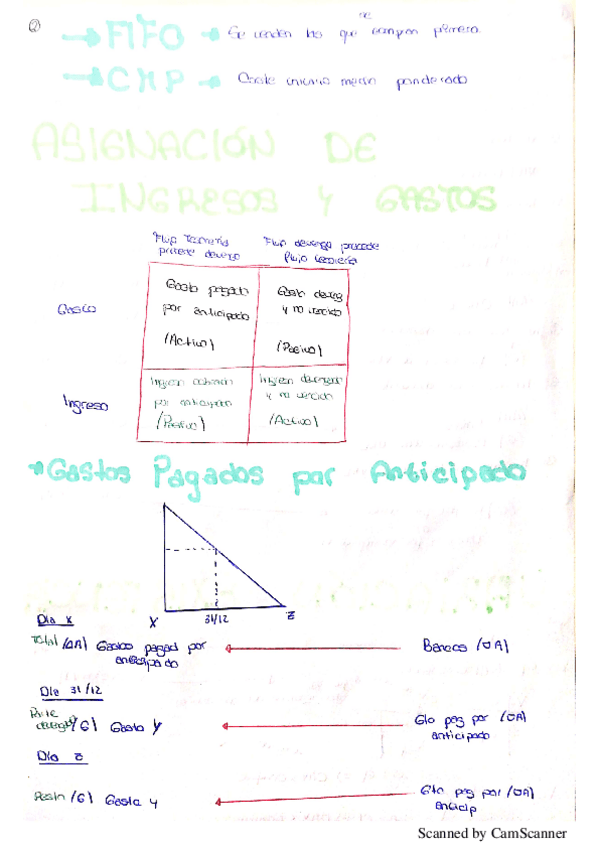 ②
→ FIFO → Se venden los que se compran primero
→ CMP → Coste medio ponderado
ASIGNACIÓN DE
INGRESOS Y GASTOS
Flujo Tesorería precede devengo
Flujo devengo precede flujo tesorería
Gasto
Gasto pagado por anticipado (Activo)
Gasto deveg y no vencido (Pasivo)
Ingreso
Ingreso por anticipado (Pasivo)
Ingreso devengado y no vencido (Activo)
→ Gastos Pagados por Anticipado
X 31/12 Z
Día X
Total (↑A) Gastos pagad por anticipado ← Bancos (↓A)
Día 31/12
Parte (G) Gasto Y ← Gto pag por anticipado (↓A)
Día Z
(G) Gasto y ← Gto pag por anticip (↓A)
Scanned by CamScanner